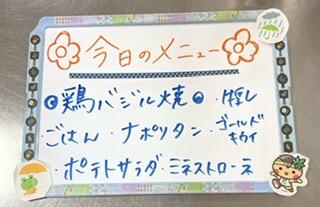 今日のメニュー
鶏バジル焼 ・蒸し
ごはん ナポリタン ・ゴールドキウイ
・ポテトサラダ ・ミネストローネ